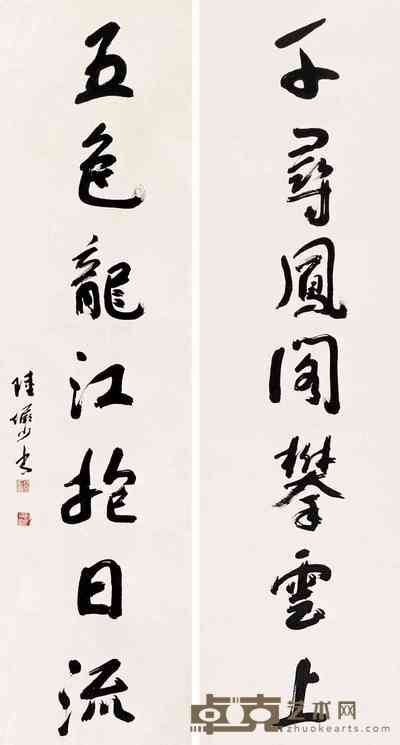 千尋鳳閣攀雲上
五色龍江抱日流
陸儼少書
卓克艺术网
zhuokearts.com